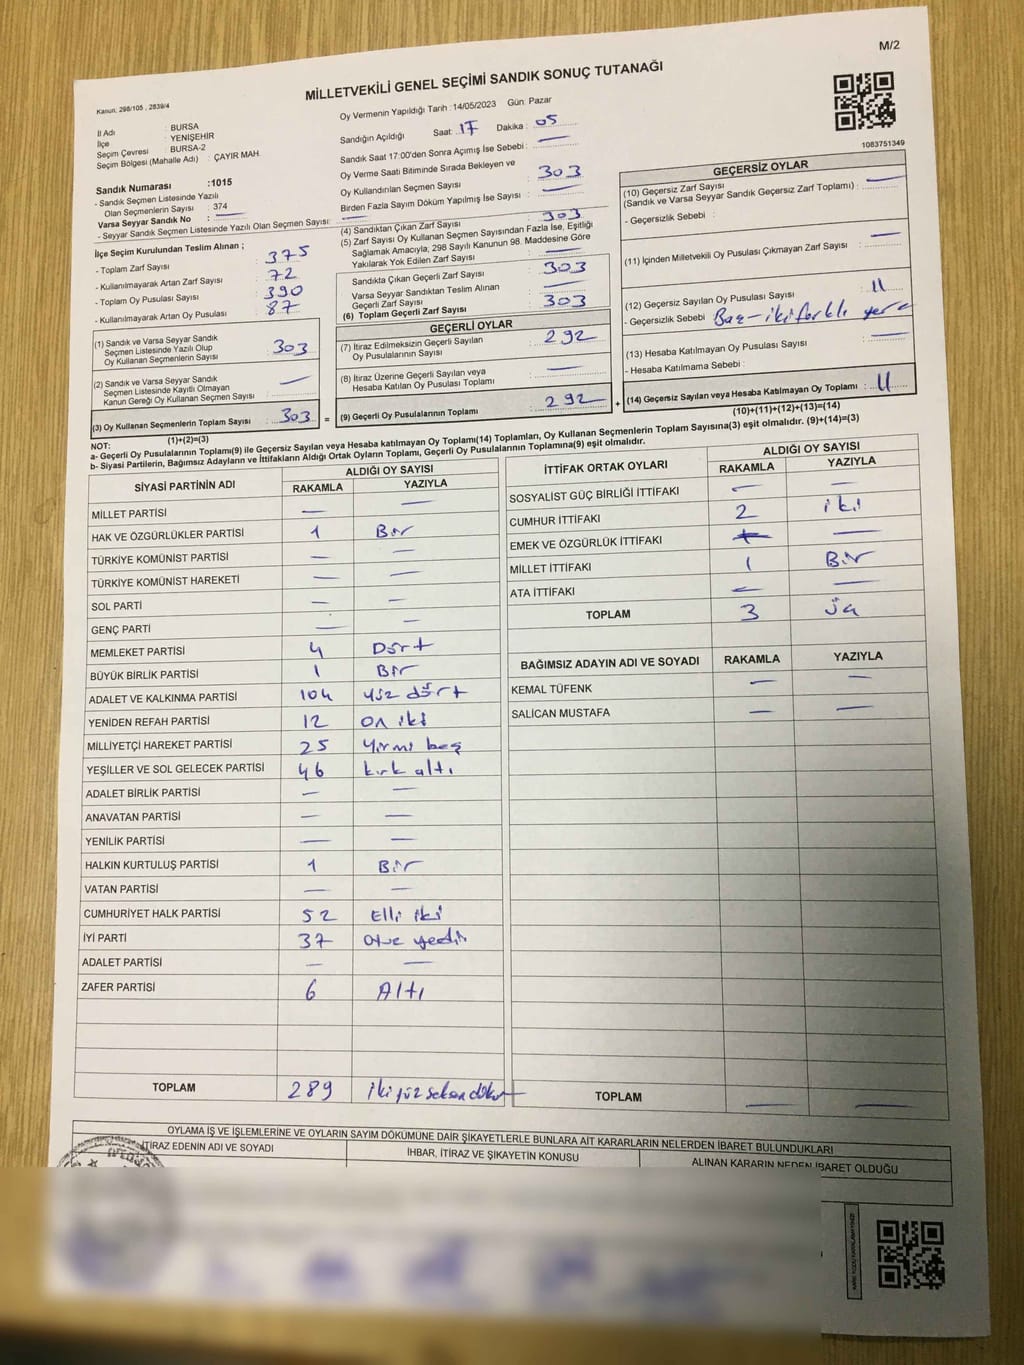 M/2
MİLLETVEKİLİ GENEL SEÇİMİ SANDIK SONUÇ TUTANAĞI
Kanun: 298/105 , 2839/4
İl Adı : BURSA
İlçe : YENİŞEHİR
Seçim Çevresi : BURSA-2
Seçim Bölgesi (Mahalle Adı) : ÇAYIR MAH.
Sandık Numarası :1015
- Sandık Seçmen Listesinde Yazılı
Olan Seçmenlerin Sayısı : 374
Varsa Seyyar Sandık No : —
- Seyyar Sandık Seçmen Listesinde Yazılı Olan Seçmen Sayısı: —
İlçe Seçim Kurulundan Teslim Alınan ;
- Toplam Zarf Sayısı : 375
- Kullanılmayarak Artan Zarf Sayısı : 72
- Toplam Oy Pusulası Sayısı : 390
- Kullanılmayarak Artan Oy Pusulası : 87
(1) Sandık ve Varsa Seyyar Sandık
Seçmen Listesinde Yazılı Olup
Oy Kullanan Seçmenlerin Sayısı : 303
(2) Sandık ve Varsa Seyyar Sandık
Seçmen Listesinde Kayıtlı Olmayan
Kanun Gereği Oy Kullanan Seçmen Sayısı : —
(3) Oy Kullanan Seçmenlerin Toplam Sayısı : 303 =
(1)+(2)=(3)
Oy Vermenin Yapıldığı Tarih : 14/05/2023 Gün: Pazar
Sandığın Açıldığı Saat : 17 Dakika : 05
Sandık Saat 17:00'den Sonra Açımış İse Sebebi : —
Oy Verme Saati Bitiminde Sırada Bekleyen ve
Oy Kullandırılan Seçmen Sayısı : 303
Birden Fazla Sayım Döküm Yapılmış İse Sayısı : —
(4) Sandıktan Çıkan Zarf Sayısı : 303
(5) Zarf Sayısı Oy Kullanan Seçmen Sayısından Fazla İse, Eşitliği
Sağlamak Amacıyla, 298 Sayılı Kanunun 98. Maddesine Göre
Yakılarak Yok Edilen Zarf Sayısı : —
Sandıkta Çıkan Geçerli Zarf Sayısı : 303
Varsa Seyyar Sandıktan Teslim Alınan
Geçerli Zarf Sayısı : —
(6) Toplam Geçerli Zarf Sayısı : 303
GEÇERLİ OYLAR
(7) İtiraz Edilmeksizin Geçerli Sayılan
Oy Pusulasının Sayısı : 292
(8) İtiraz Üzerine Geçerli Sayılan veya
Hesaba Katılan Oy Pusulası Toplamı : —
(9) Geçerli Oy Pusulalarının Toplamı : 292 +
1083751349
GEÇERSİZ OYLAR
(10) Geçersiz Zarf Sayısı
(Sandık ve Varsa Seyyar Sandık Geçersiz Zarf Toplamı) : —
- Geçersizlik Sebebi :
(11) İçinden Milletvekili Oy Pusulası Çıkmayan Zarf Sayısı : —
(12) Geçersiz Sayılan Oy Pusulası Sayısı : 11
- Geçersizlik Sebebi : iki farklı yere
(13) Hesaba Katılmayan Oy Pusulası Sayısı : —
- Hesaba Katılmama Sebebi :
(14) Geçersiz Sayılan veya Hesaba Katılmayan Oy Toplamı : 11
(10)+(11)+(12)+(13)=(14)
NOT:
a- Geçerli Oy Pusulalarının Toplamı(9) ile Geçersiz Sayılan veya Hesaba katılmayan Oy Toplamı(14) Toplamları, Oy Kullanan Seçmenlerin Toplam Sayısına(3) eşit olmalıdır. (9)+(14)=(3)
b- Siyasi Partilerin, Bağımsız Adayların ve İttifakların Aldığı Ortak Oyların Toplamı, Geçerli Oy Pusulalarının Toplamına(9) eşit olmalıdır.
SİYASİ PARTİNİN ADI ALDIĞI OY SAYISI
RAKAMLA YAZIYLA
MİLLET PARTİSİ — —
HAK VE ÖZGÜRLÜKLER PARTİSİ 1 Bir
TÜRKİYE KOMÜNİST PARTİSİ — —
TÜRKİYE KOMÜNİST HAREKETİ — —
SOL PARTİ — —
GENÇ PARTİ — —
MEMLEKET PARTİSİ 4 Dört
BÜYÜK BİRLİK PARTİSİ 1 Bir
ADALET VE KALKINMA PARTİSİ 104 yüz dört
YENİDEN REFAH PARTİSİ 12 on iki
MİLLİYETÇİ HAREKET PARTİSİ 25 yirmi beş
YEŞİLLER VE SOL GELECEK PARTİSİ 46 kırk altı
ADALET BİRLİK PARTİSİ — —
ANAVATAN PARTİSİ — —
YENİLİK PARTİSİ — —
HALKIN KURTULUŞ PARTİSİ 1 Bir
VATAN PARTİSİ — —
CUMHURİYET HALK PARTİSİ 52 Elli iki
İYİ PARTİ 37 otuz yedi
ADALET PARTİSİ — —
ZAFER PARTİSİ 6 Altı
TOPLAM 289 iki yüz seksen dokuz
İTTİFAK ORTAK OYLARI ALDIĞI OY SAYISI
RAKAMLA YAZIYLA
SOSYALİST GÜÇ BİRLİĞİ İTTİFAKI — —
CUMHUR İTTİFAKI 2 iki
EMEK VE ÖZGÜRLÜK İTTİFAKI —
MİLLET İTTİFAKI 1 Bir
ATA İTTİFAKI — —
TOPLAM 3 üç
BAĞIMSIZ ADAYIN ADI VE SOYADI RAKAMLA YAZIYLA
KEMAL TÜFENK — —
SALİCAN MUSTAFA — —
TOPLAM — —
OYLAMA İŞ VE İŞLEMLERİNE VE OYLARIN SAYIM DÖKÜMÜNE DAİR ŞİKAYETLERLE BUNLARA AİT KARARLARIN NELERDEN İBARET BULUNDUKLARI
İTİRAZ EDENİN ADI VE SOYADI İHBAR, İTİRAZ VE ŞİKAYETİN KONUSU ALINAN KARARIN NEDEN İBARET OLDUĞU